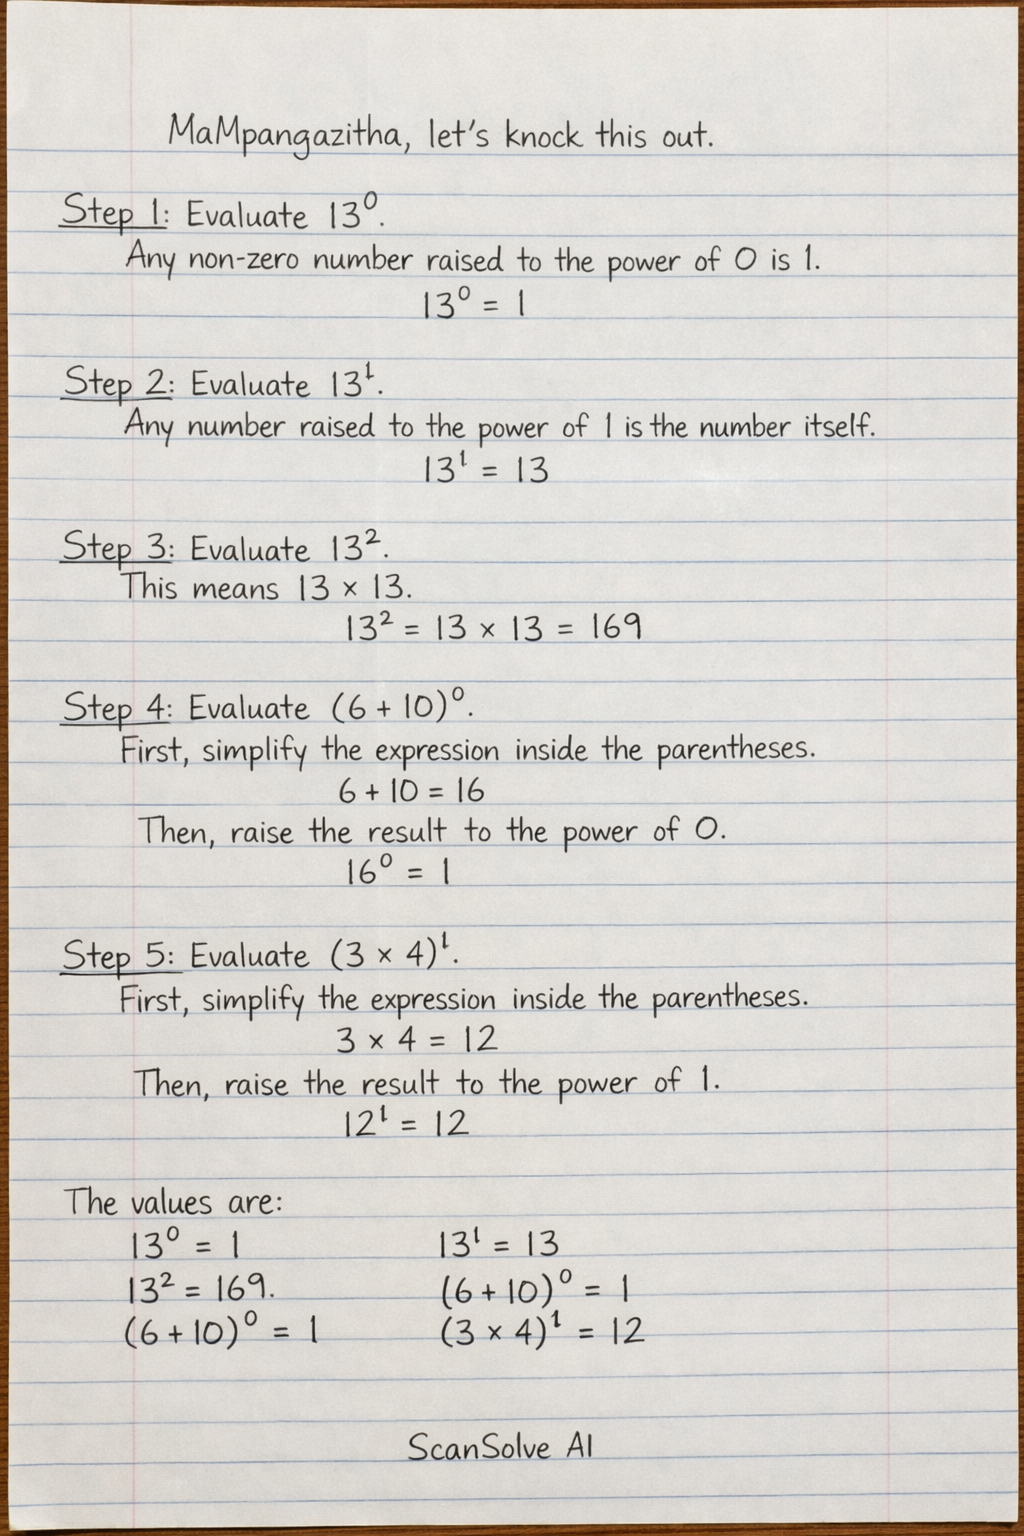 MaMpangazitha, let's knock this out.
Step 1: Evaluate 13⁰.
Any non-zero number raised to the power of 0 is 1.
13⁰ = 1
Step 2: Evaluate 13¹.
Any number raised to the power of 1 is the number itself.
13¹ = 13
Step 3: Evaluate 13².
This means 13 × 13.
13² = 13 × 13 = 169
Step 4: Evaluate (6 + 10)⁰.
First, simplify the expression inside the parentheses.
6 + 10 = 16
Then, raise the result to the power of 0.
16⁰ = 1
Step 5: Evaluate (3 × 4)¹.
First, simplify the expression inside the parentheses.
3 × 4 = 12
Then, raise the result to the power of 1.
12¹ = 12
The values are:
13⁰ = 1 13¹ = 13
13² = 169. (6 + 10)⁰ = 1
(6 + 10)⁰ = 1 (3 × 4)¹ = 12
ScanSolve AI